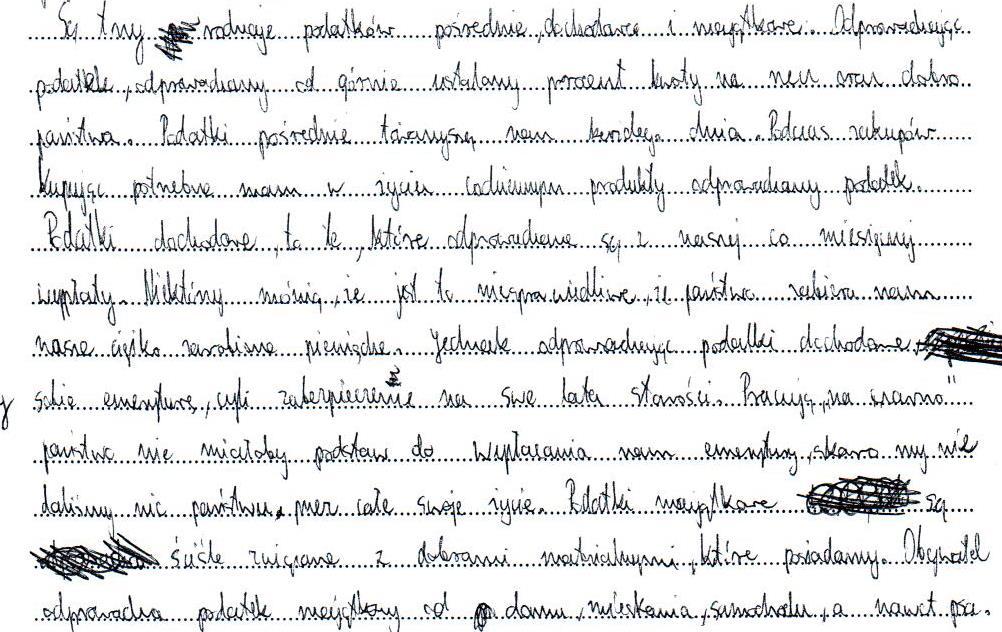 Są trzy rodzaje podatków pośrednie, dochodowe i majątkowe. Odprowadzając
podatek, odprowadzamy od górnie ustalony procent kwoty na rzecz dobra
państwa. Podatki pośrednie towarzyszą nam każdego dnia. Podczas zakupów
kupując potrzebne nam w życiu codziennym produkty odprowadzamy podatek.
Podatki dochodowe, to te, które odprowadzane są z naszej co miesięcznej
wypłaty. Niektórzy mówią, że jest to niesprawiedliwe, że państwo zabiera nam
nasze ciężko zarobione pieniądze. Jednak odprowadzając podatki dochodowe,
y sobie emeryturę, czyli zabezpieczenie na swe lata starości. Pracując "na czarno"
państwo nie miałoby podstaw do wypłacania nam emerytury, skoro my nie
daliśmy nic państwu, przez całe swoje życie. Podatki majątkowe są
ściśle związane z dobrami materialnymi, które posiadamy. Obywatel
odprowadza podatek majątkowy od domu, mieszkania, samochodu, a nawet psa.